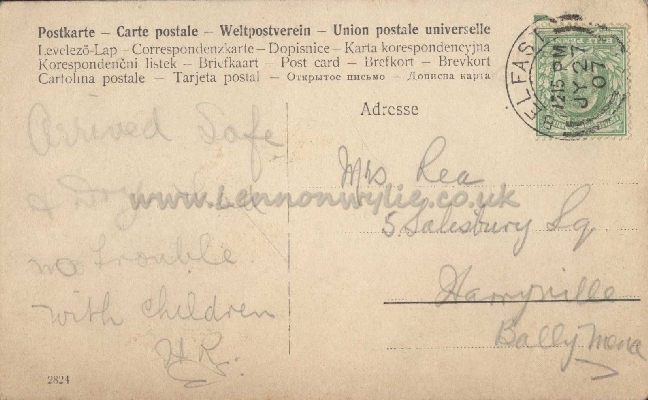 Postkarte – Carte postale – Weltpostverein – Union postale universelle
Levelező-Lap – Correspondenzkarte – Dopisnice – Karta korespondencyjna
Korespondenční listek – Briefkaart – Post card – Brefkort – Brevkort
Cartolina postale – Tarjeta postal – Открытое письмо – Дописна карта
Adresse
BELFAST
12 15 PM
JY 27
07
Arrived Safe
&
no trouble
with children
H R.
Mrs Rea
5 Salesbury Sq
Harryville
Ballymena
www.Lennonwylie.co.uk
2824